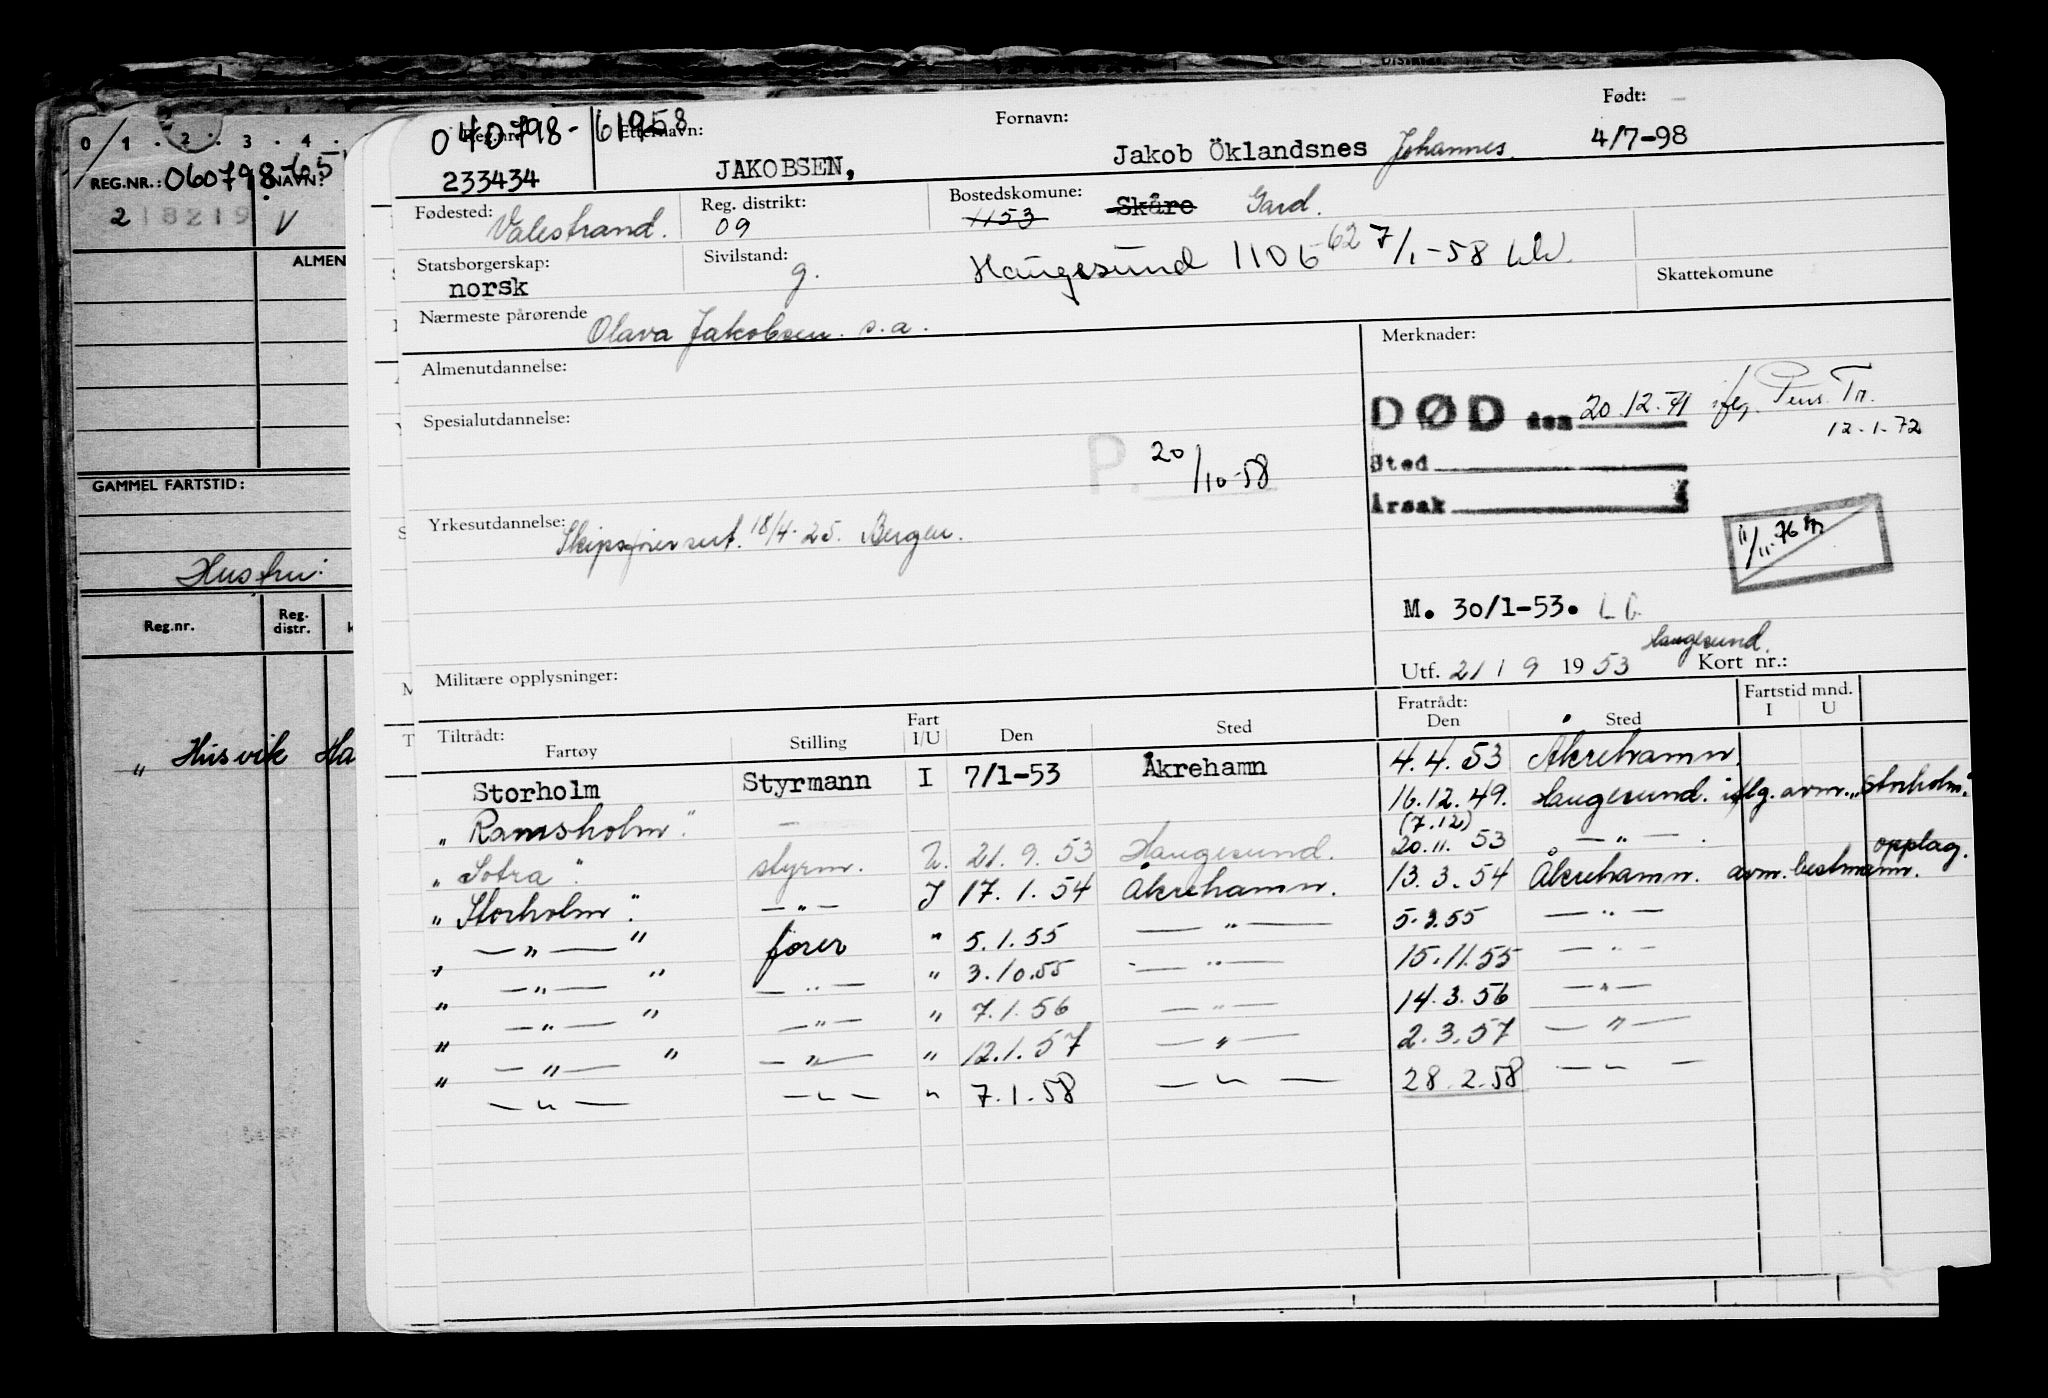 0 / 1 . 2 . 3 . 4 .
REG.NR.: 060798 NAVN:
2 18219 V
ALMEN
GAMMEL FARTSTID:
Hustru:
Reg.nr. Reg. distr.
" Husvik Ha
Reg.nr. Etternavn: Fornavn: Født:
040798- 61958
233434 JAKOBSEN, Jakob Öklandsnes Johannes. 4/7-98
Fødested: Valestrand. Reg. distrikt: 09 Bostedskommune: 1153 Skåre Gard.
Statsborgerskap: norsk Sivilstand: g. Haugesund 1106 62 7/1-58
Skattekomune
Nærmeste pårørende Olava Jakobsen. s.a.
Almenutdannelse:
Merknader:
DØD den 20.12.71 ifg. Pens. Tr.
12.1.72
Spesialutdannelse:
P. 20/10-58
Sted
Årsak
Yrkesutdannelse: Skipsførersert. 18/4-25. Bergen.
11/11-76
M. 30/1-53. LG
Haugesund.
Utf. 21 / 9 1953 Kort nr.:
Militære opplysninger:
Tiltrådt: Fartøy Stilling Fart I/U Den Sted Fratrådt: Den Sted Fartstid mnd. I U
Storholm Styrmann I 7/1-53 Åkrehamn 4.4.53 Åkrehamn.
" Ramsholm". — 16.12.49. Haugesund. iflg. avm. "Storholm."
(7.12)
" Sotra". styrm. U. 21.9.53 Haugesund. 20.11.53 — " — . opplag.
" Storholm". — " — I 17.1.54 Åkrehamn. 13.3.54 Åkrehamn. avm. bestmann.
" — " — " fører " 5.1.55 — " — 5.3.55 — " —
" — " — " — " — " 3.10.55 — " — 15.11.55 — " —
" — " — " — " — " 7.1.56 — " — 14.3.56 — " —
" — " — " — " — " 12.1.57 — " — 2.3.57 — " —
— " — — " — " 7.1.58 — " — 28.2.58 — " —